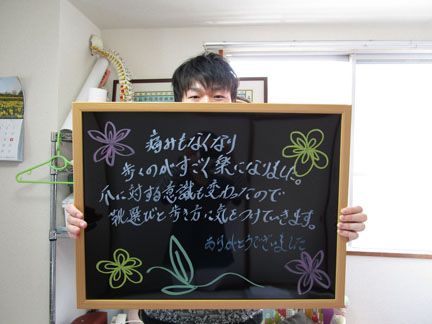 痛みもなくなり
歩くのがすごく楽になりました。
爪に対する意識も変わったので
靴選びと歩き方に気をつけていきます。
ありがとうございました